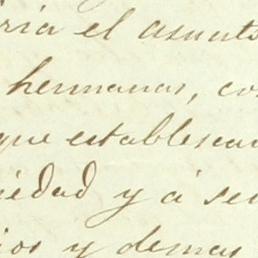 ría el asunto
hermanas, co
que establescan
iedad y á se
ios y demas